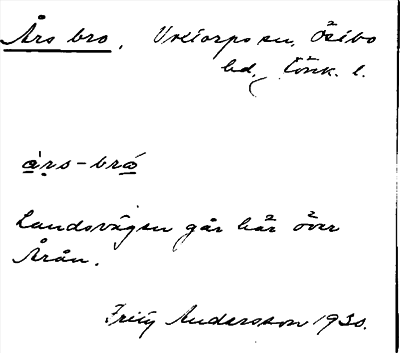 Års bro. Vretorps sn, Östbo
hd, Jönk. l.
àrs-brǻ
Landsvägen går här över
Årån.
Fritz Andersson 1930.